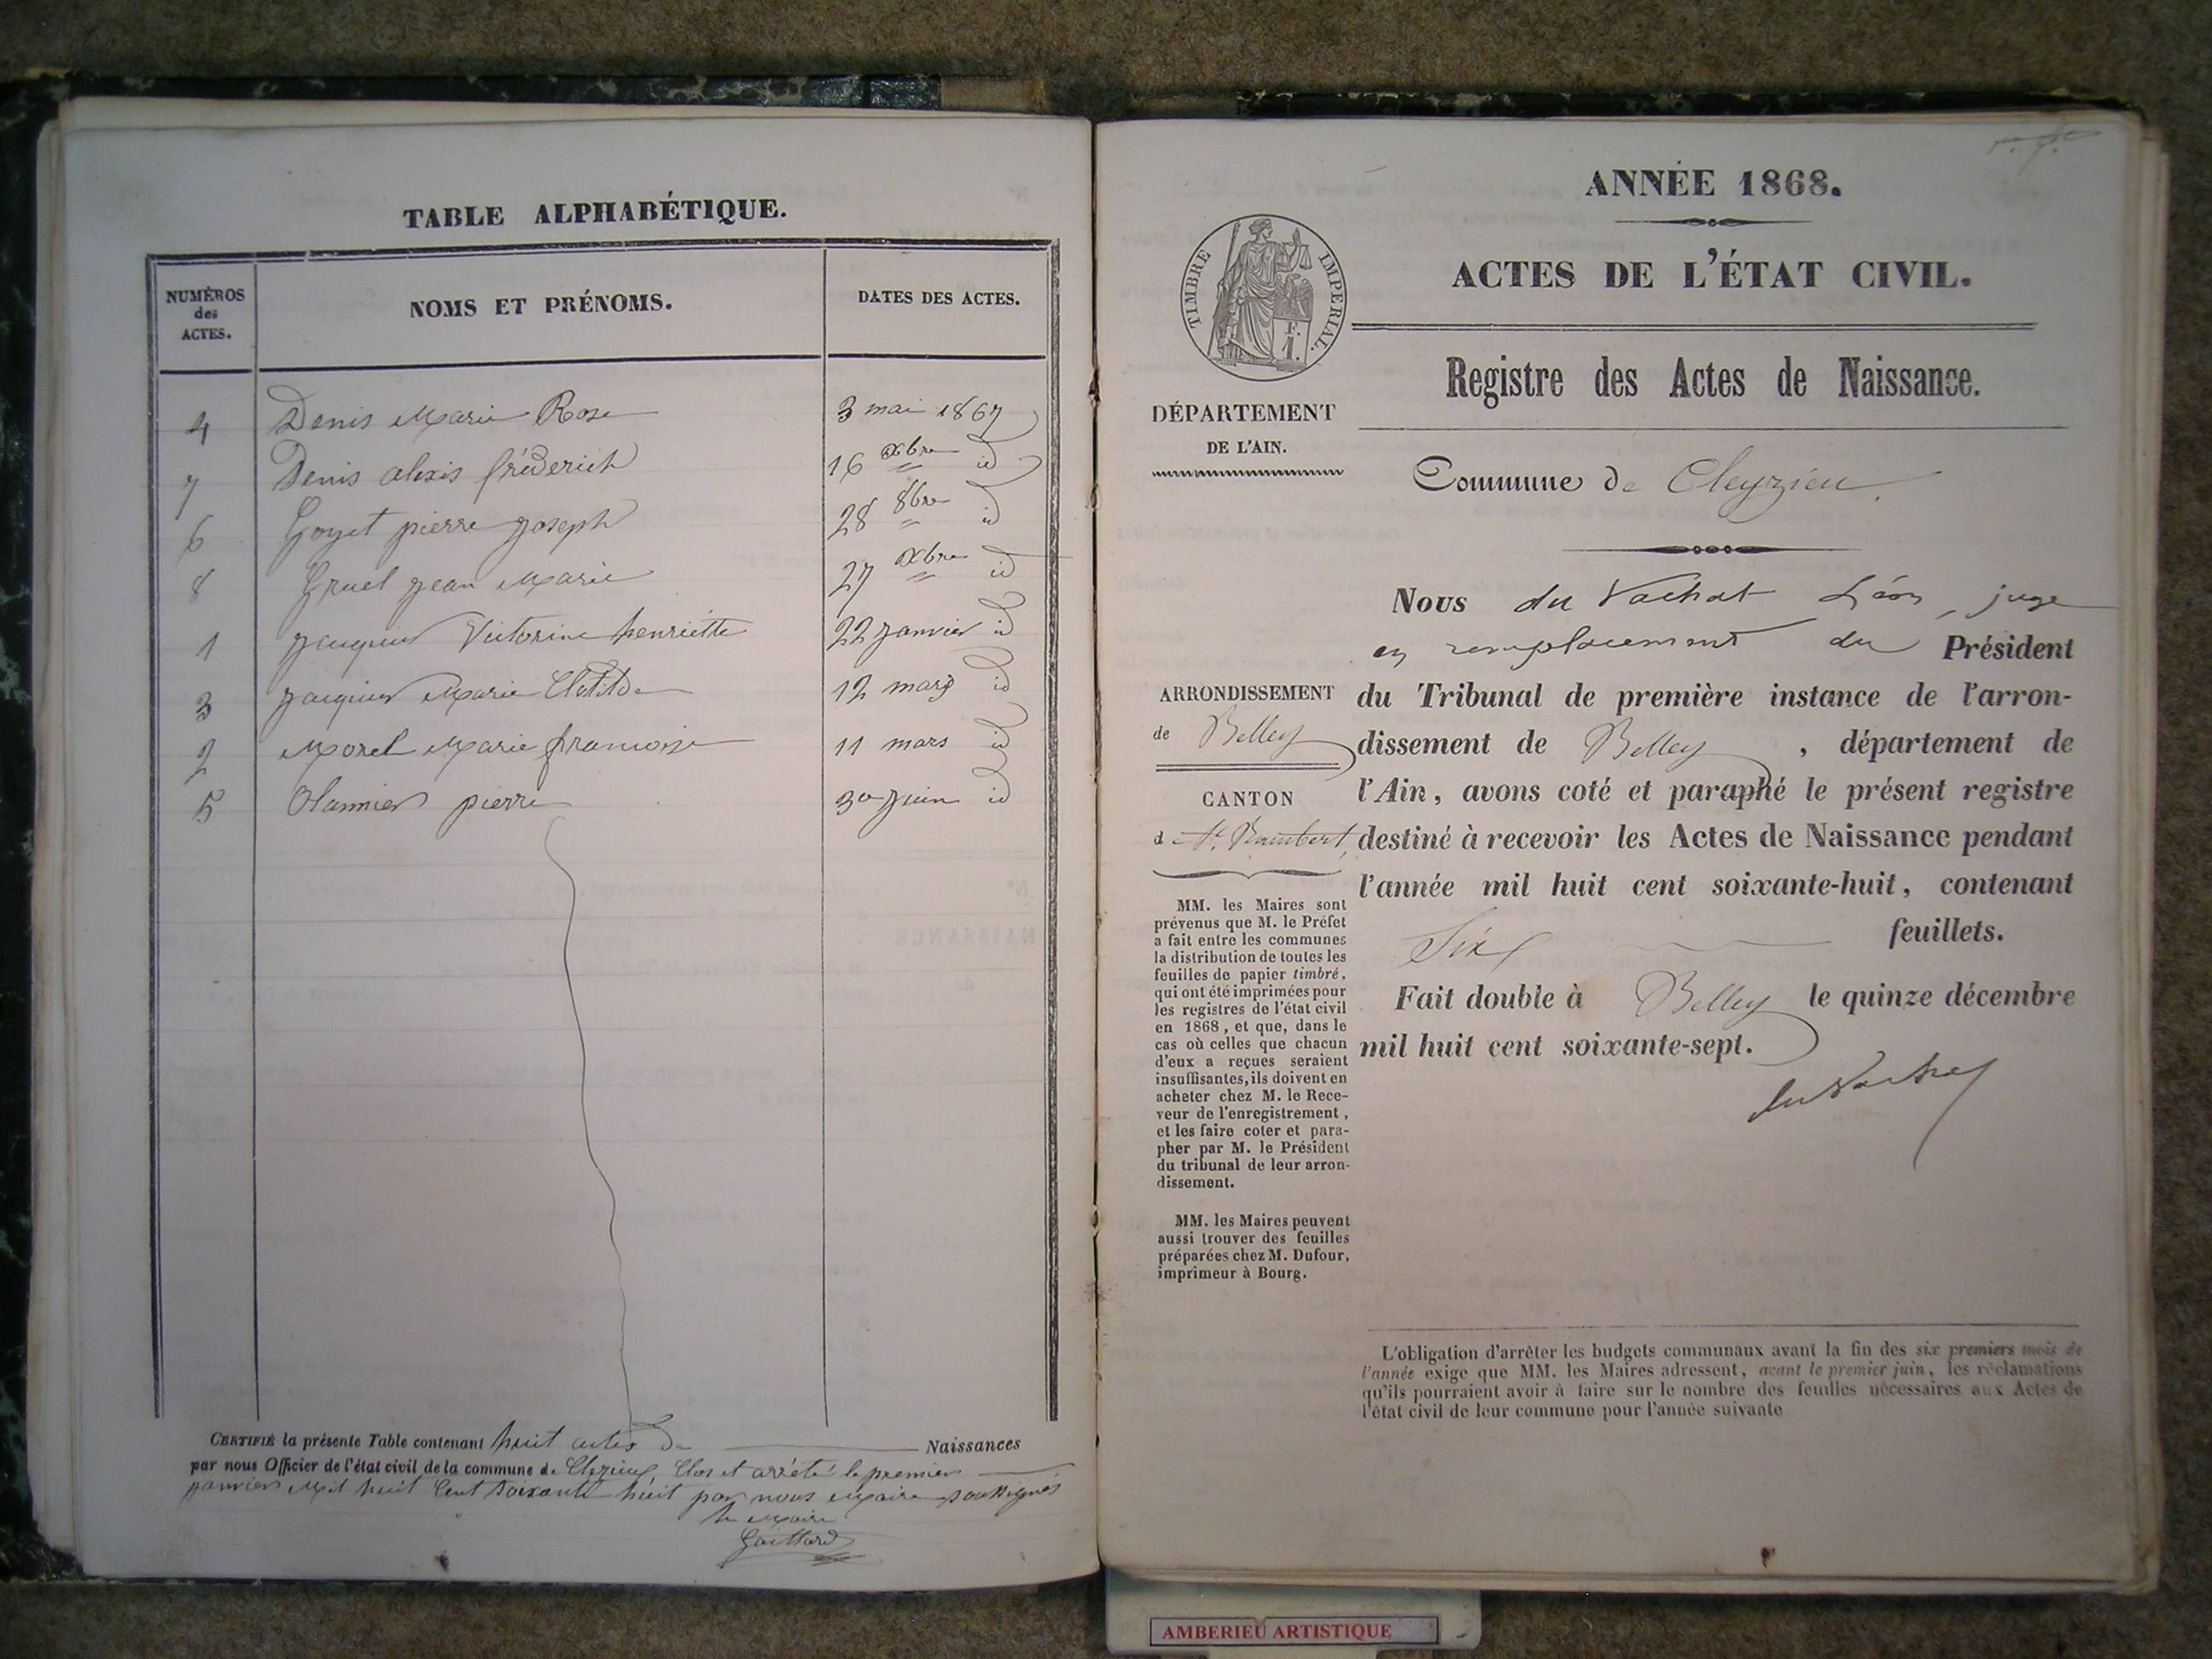 TABLE ALPHABÉTIQUE.
NUMÉROS des ACTES.
NOMS ET PRÉNOMS.
DATES DES ACTES.
4 Denis Marie Rose 3 mai 1867
7 Denis alexis fréderich 16 Xbre id
6 Goyet pierre joseph 28 8bre id
8 Gruel jean Marie 27 Xbre id
1 jacquier Victorine henriette 22 janvier id
3 jacquier Marie Clotilde 12 mars id
2 Morel Marie francoise 11 mars id
5 pierre 30 juin id
CERTIFIÉ la présente Table contenant huit actes de Naissances
par nous Officier de l'état civil de la commune de Cleyzieu Clos et arrêté le premier
janvier Mil huit Cent soixante huit par nous Maire soussignés
le Maire
Gaillard
ANNÉE 1868.
TIMBRE IMPERIAL.
F.
1.
ACTES DE L'ÉTAT CIVIL.
Registre des Actes de Naissance.
DÉPARTEMENT
DE L'AIN.
Commune de Cleyzieu.
Nous du Vachat Léon, juge
en remplacement du Président
du Tribunal de première instance de l'arron-
dissement de Belley, département de
l'Ain, avons coté et paraphé le présent registre
destiné à recevoir les Actes de Naissance pendant
l'année mil huit cent soixante-huit, contenant
Six feuillets.
Fait double à Belley le quinze décembre
mil huit cent soixante-sept.
du Vachat
ARRONDISSEMENT
de Belley
CANTON
d St. Rambert,
MM. les Maires sont
prévenus que M. le Préfet
a fait entre les communes
la distribution de toutes les
feuilles de papier timbré,
qui ont été imprimées pour
les registres de l'état civil
en 1868, et que, dans le
cas où celles que chacun
d'eux a reçues seraient
insuffisantes, ils doivent en
acheter chez M. le Rece-
veur de l'enregistrement,
et les faire coter et para-
pher par M. le Président
du tribunal de leur arron-
dissement.
MM. les Maires peuvent
aussi trouver des feuilles
préparées chez M. Dufour,
imprimeur à Bourg.
L'obligation d'arrêter les budgets communaux avant la fin des six premiers mois de
l'année exige que MM. les Maires adressent, avant le premier juin, les réclamations
qu'ils pourraient avoir à faire sur le nombre des feuilles nécessaires aux Actes de
l'état civil de leur commune pour l'année suivante
AMBERIEU ARTISTIQUE